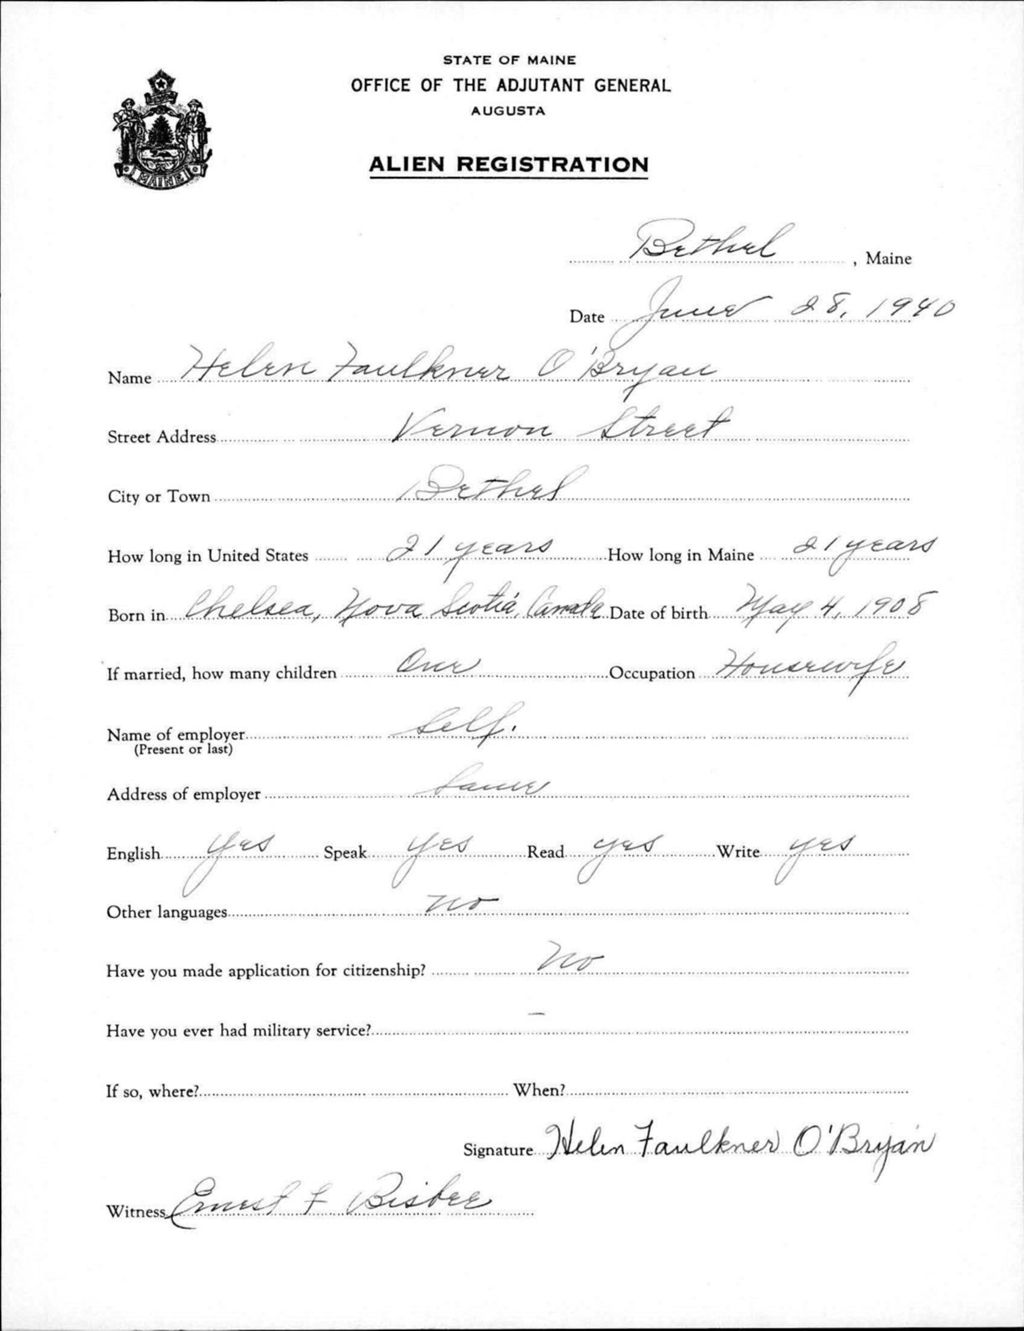 STATE OF MAINE
OFFICE OF THE ADJUTANT GENERAL
AUGUSTA
ALIEN REGISTRATION
MAINE
Bethel, Maine
Date June 28, 1940
Name Helen Faulkner O'Bryan
Street Address Vernon Street
City or Town Bethel
How long in United States 21 years How long in Maine 21 years
Born in Chelsea, Nova Scotia, Canada Date of birth May 4, 1908
If married, how many children One Occupation Housewife
Name of employer Self.
(Present or last)
Address of employer Same
English yes Speak yes Read yes Write yes
Other languages no
Have you made application for citizenship? No
Have you ever had military service? —
If so, where? When?
Signature Helen Faulkner O'Bryan
Witness Ernest F Bisbee